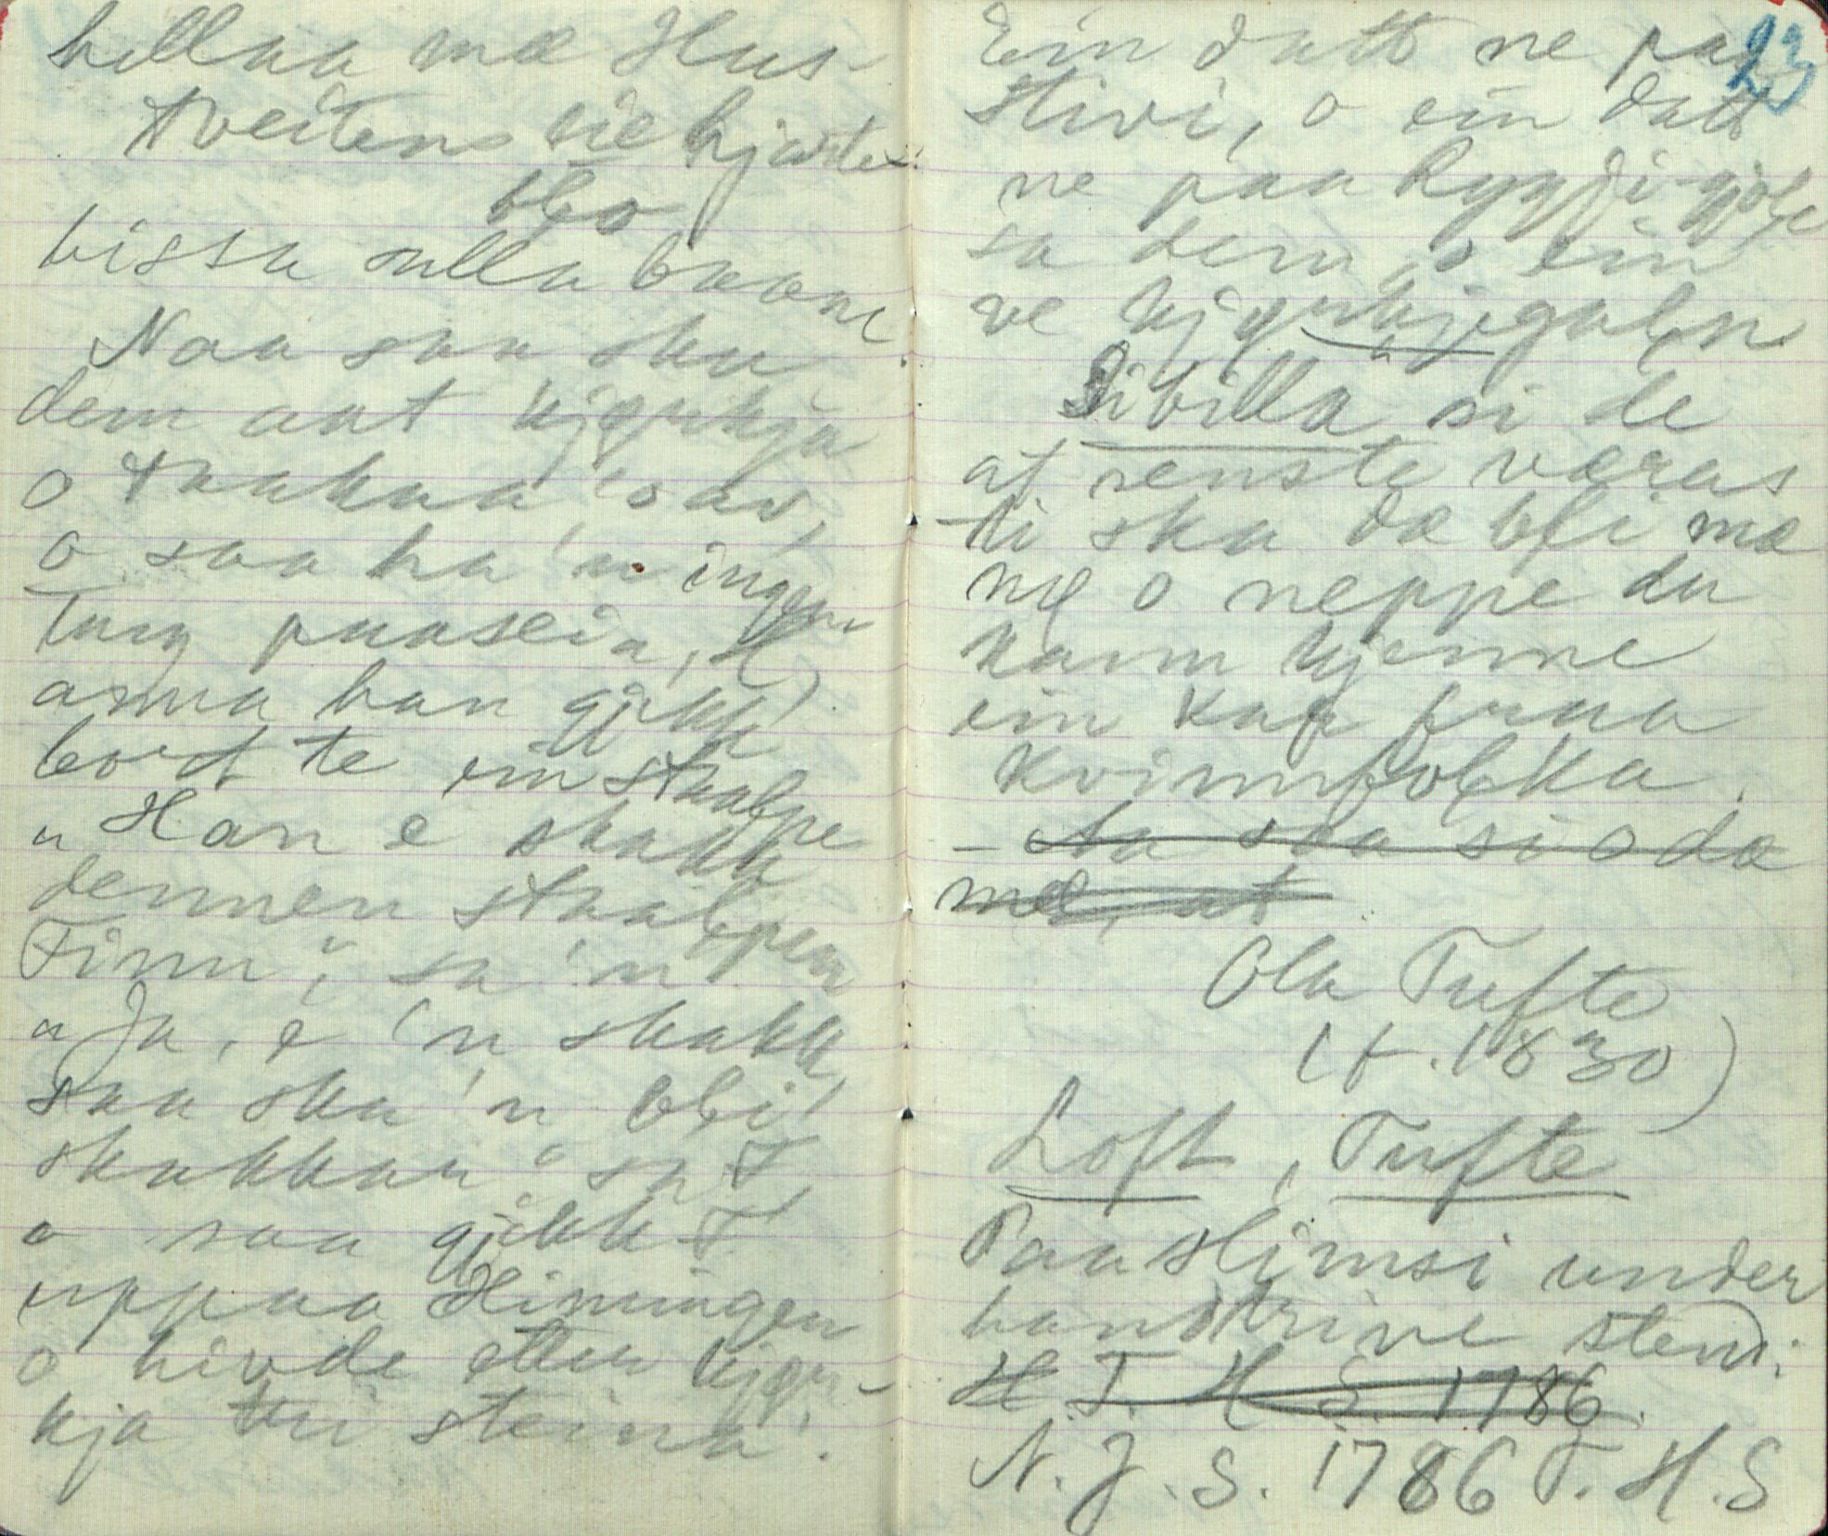 hellaa mæ Hus-
tveitens eie hjarte-
blo
bissa sulla baane.
Naa saa sku
dem aat kjyrkja
o taakaa 'o av,
o saa ha 'n ingen
ting paaseia, H)
anna han gjikk
bord te ein staalpe
"Han e skakk
dennen staalpen
Finn", sa 'n
"Ja, e 'n skakk
saa ska 'n bli
skakkar" sa F
o saa gjikk F
uppaa Himingen
o hivde etter kjyr-
kja tri steina.
23
Ein datt ne paa
Stivi, o ein datt
ne paa Rygji-gjole
sa dem, o ein
ve kjyrkjegaln.
Sibilla si de
at senste væras
ti ska dæ bli mæ
næ o neppe du
kann kjenne
ein kar fraa
kvinnfolka.
- Aa saa si o dæ
mæ, at
Ola Tufte
(f. 1830)
Loft, Tufte
Paa slimsi under
handskrive stend:
H T. H S. 1786.
N. J. S. 1786 T. H. S